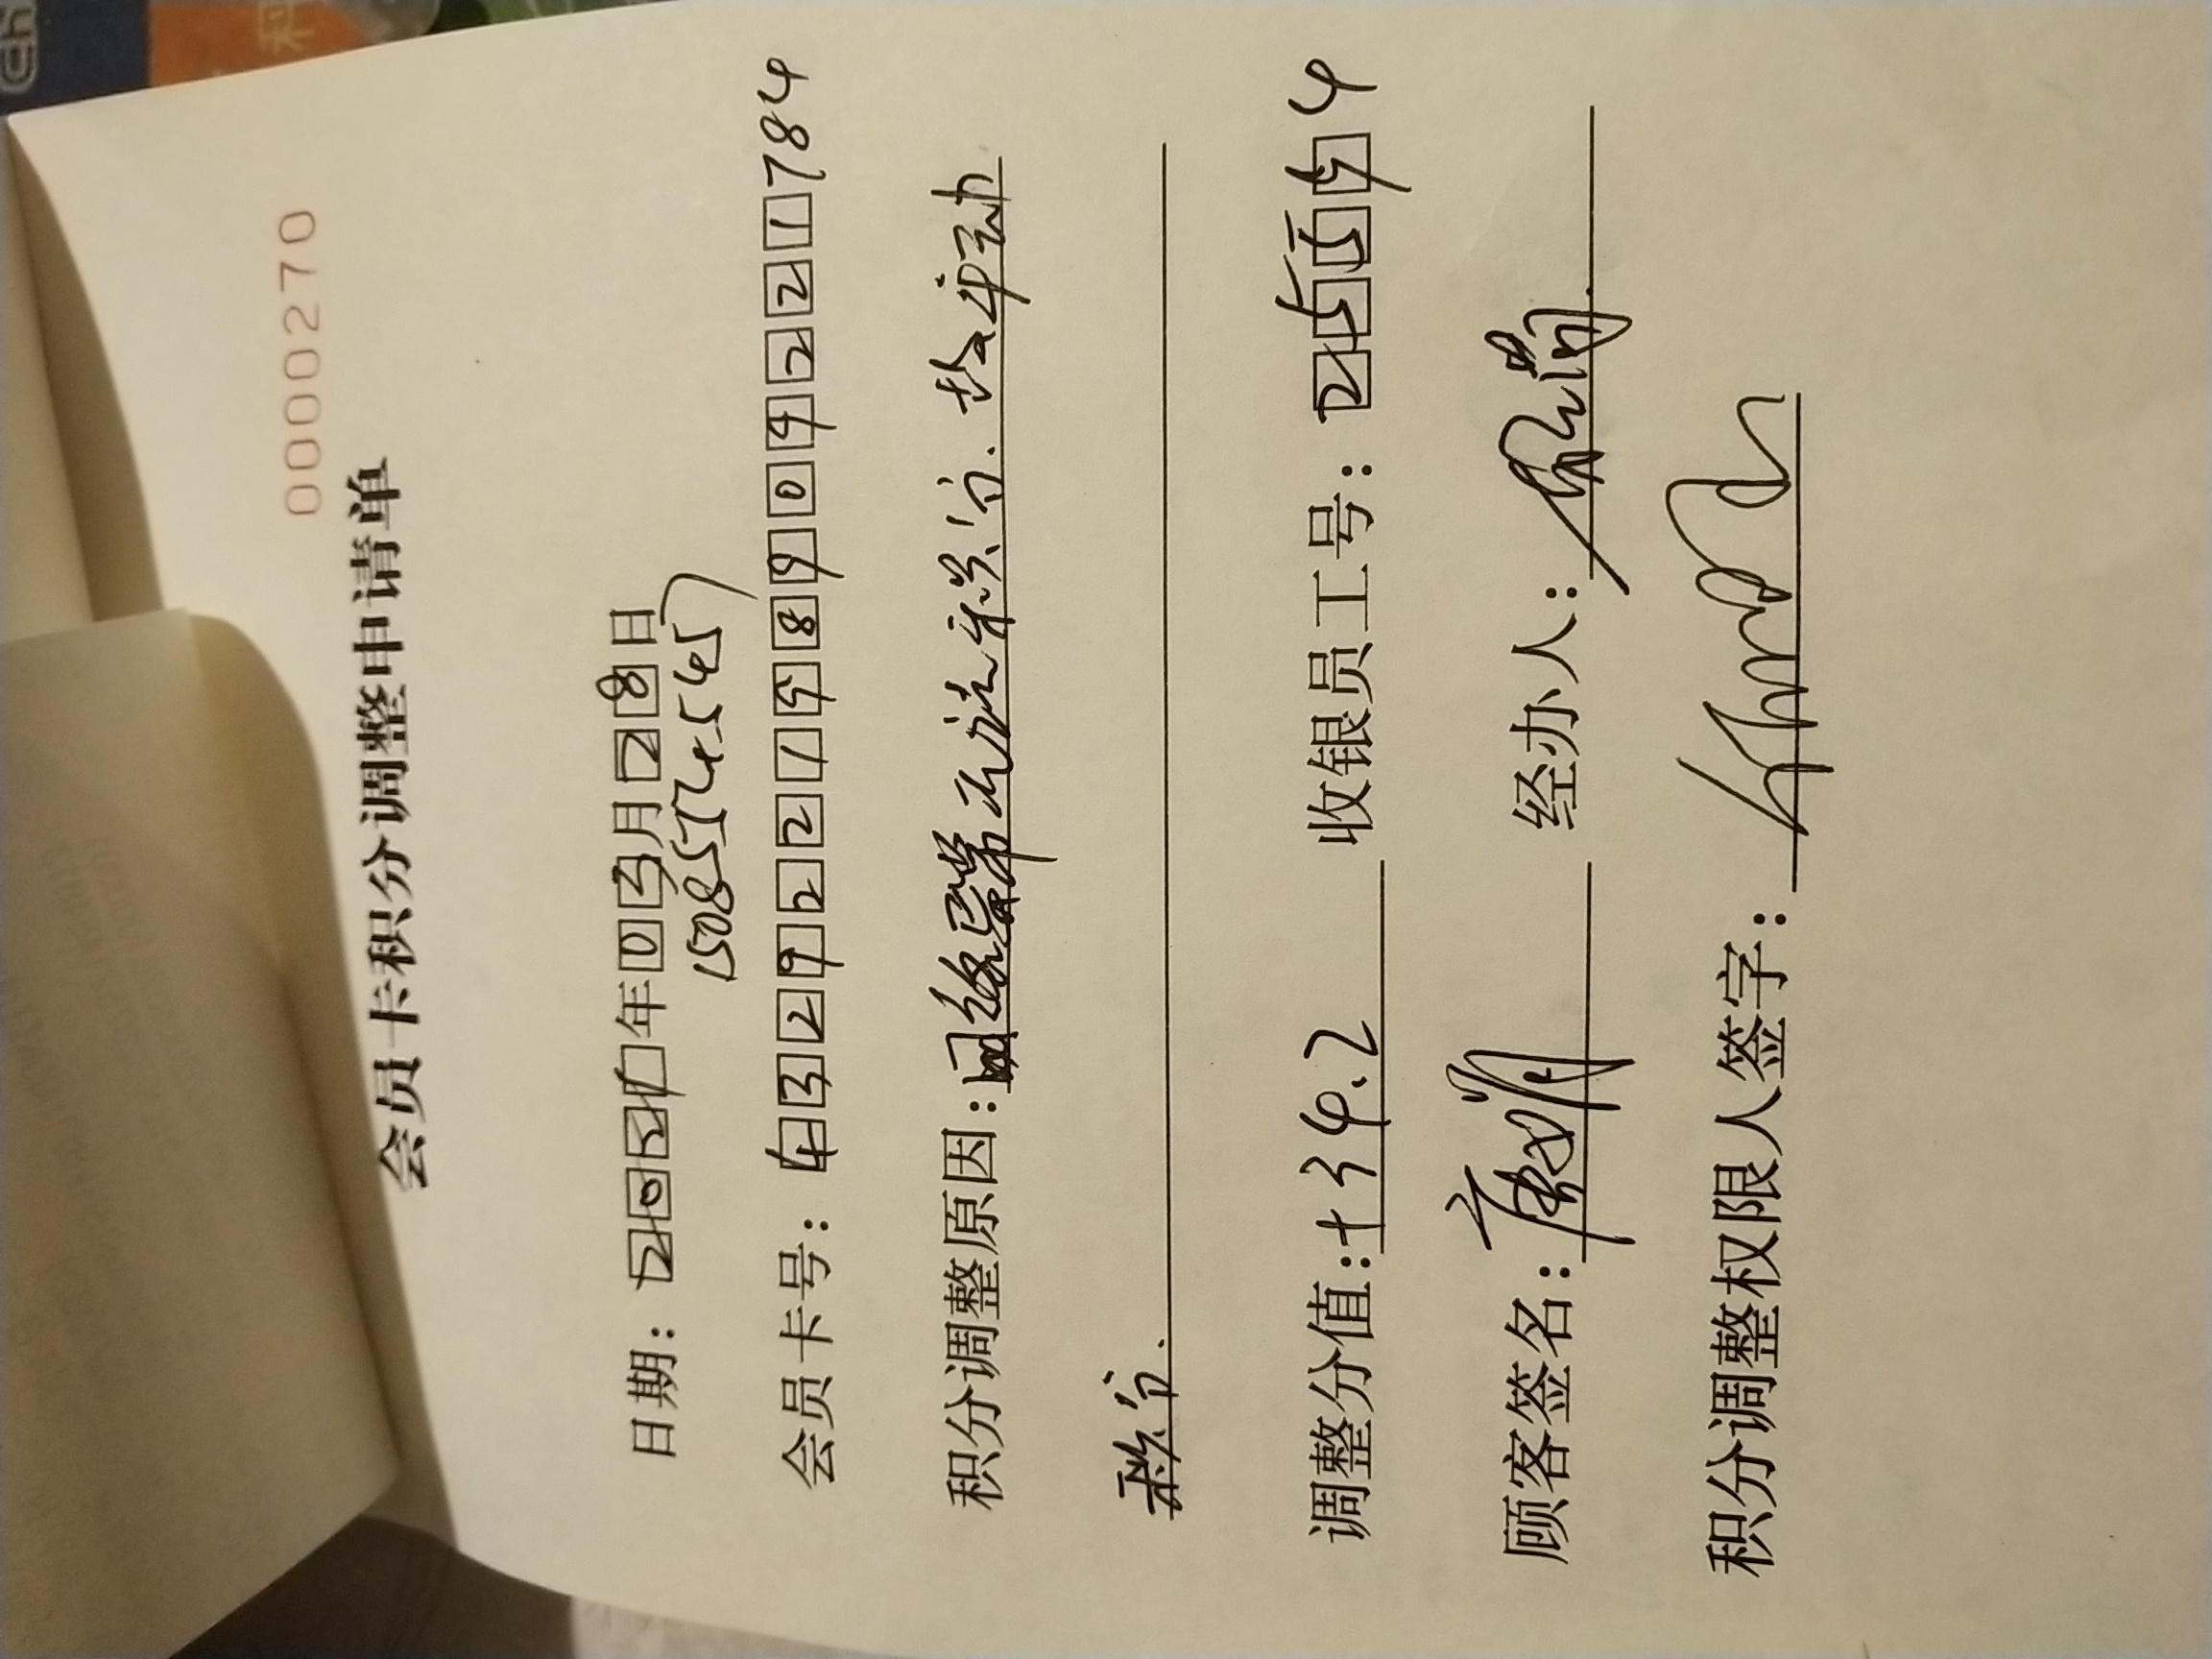 0000270
会员卡积分调整申请单
日期：2021年03月28日
会员卡号：432922158909221784
积分调整原因：网络异常无法积分．故手动
积分．
调整分值：+39.2 收银员工号：25594
顾客签名： 经办人：
积分调整权限人签字：